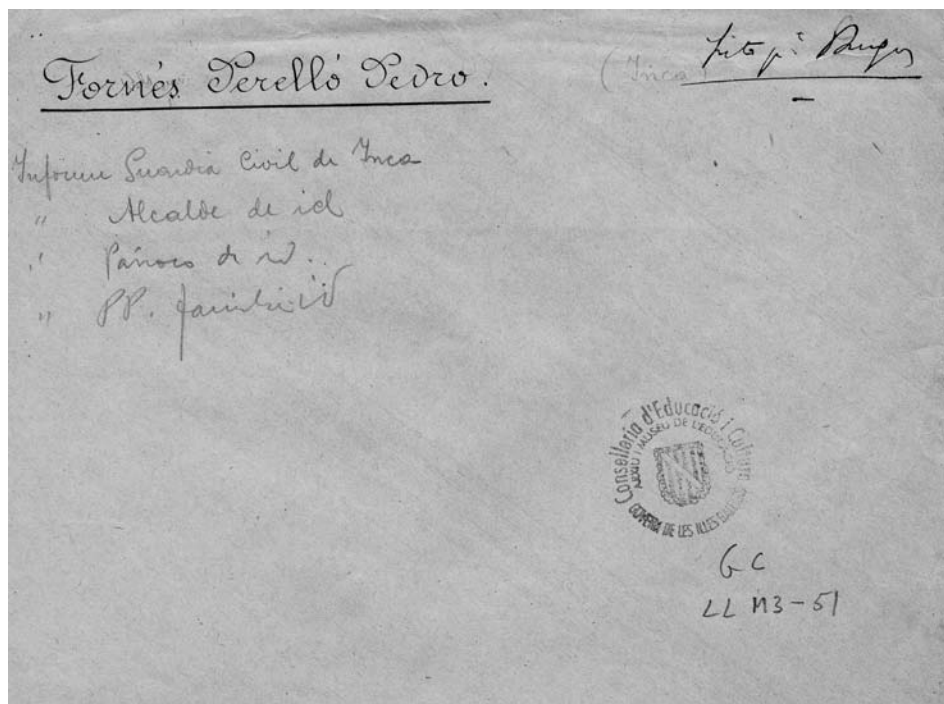 Fornés Perelló Pedro.
(Inca)
Informe Guardia Civil de Inca
" Alcalde de id
" Párroco de id.
" PP. familia
Conselleria d'Educació i Cultura
ARXIU I MUSEU DE L'EDUCACIÓ
GOVERN DE LES ILLES BALEARS
GC
LL M3-51